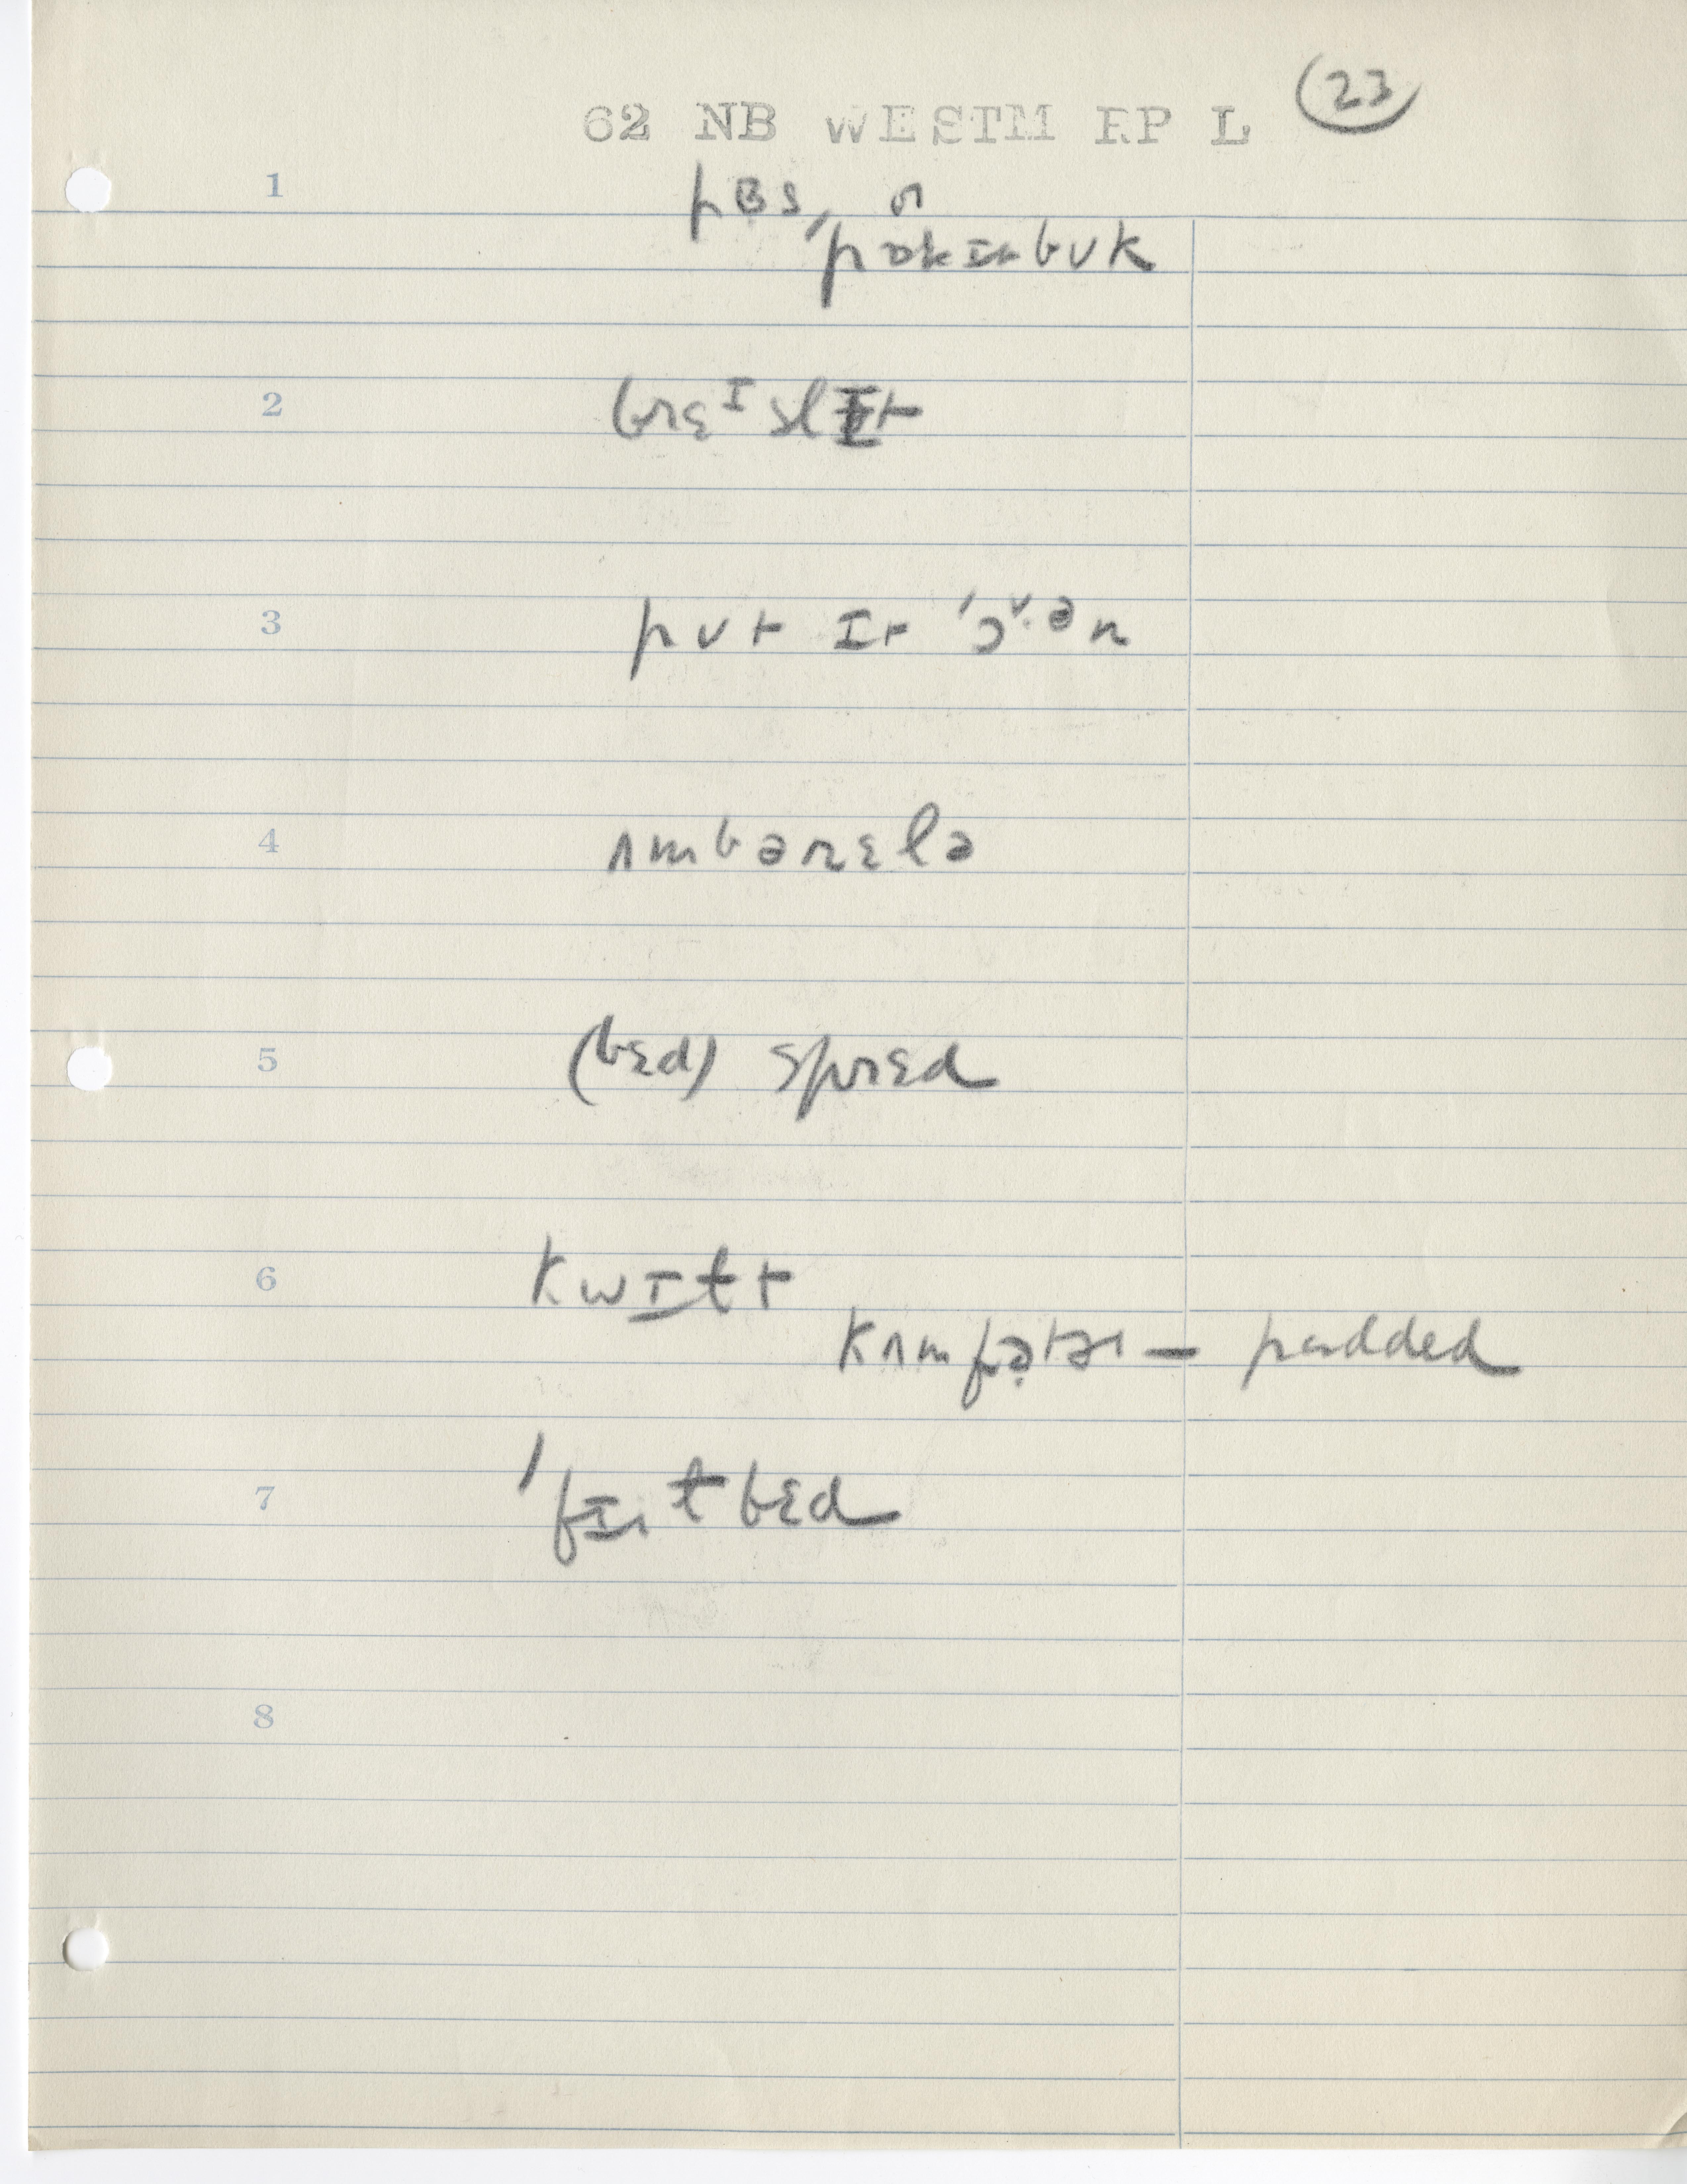 62 NB WESTM RP L (23)
1 pɜs, or
pɒkɪtbʊk
2 brɛᴵslɪt
3 pʊt ɪt 'ɔᵛ·ən
4 ʌmbərɛlə
5 (bɛd) sprɛd
6 kwɪɫt
kʌmfə̣tər — padded
7 'fɛðɚ bɛd
8